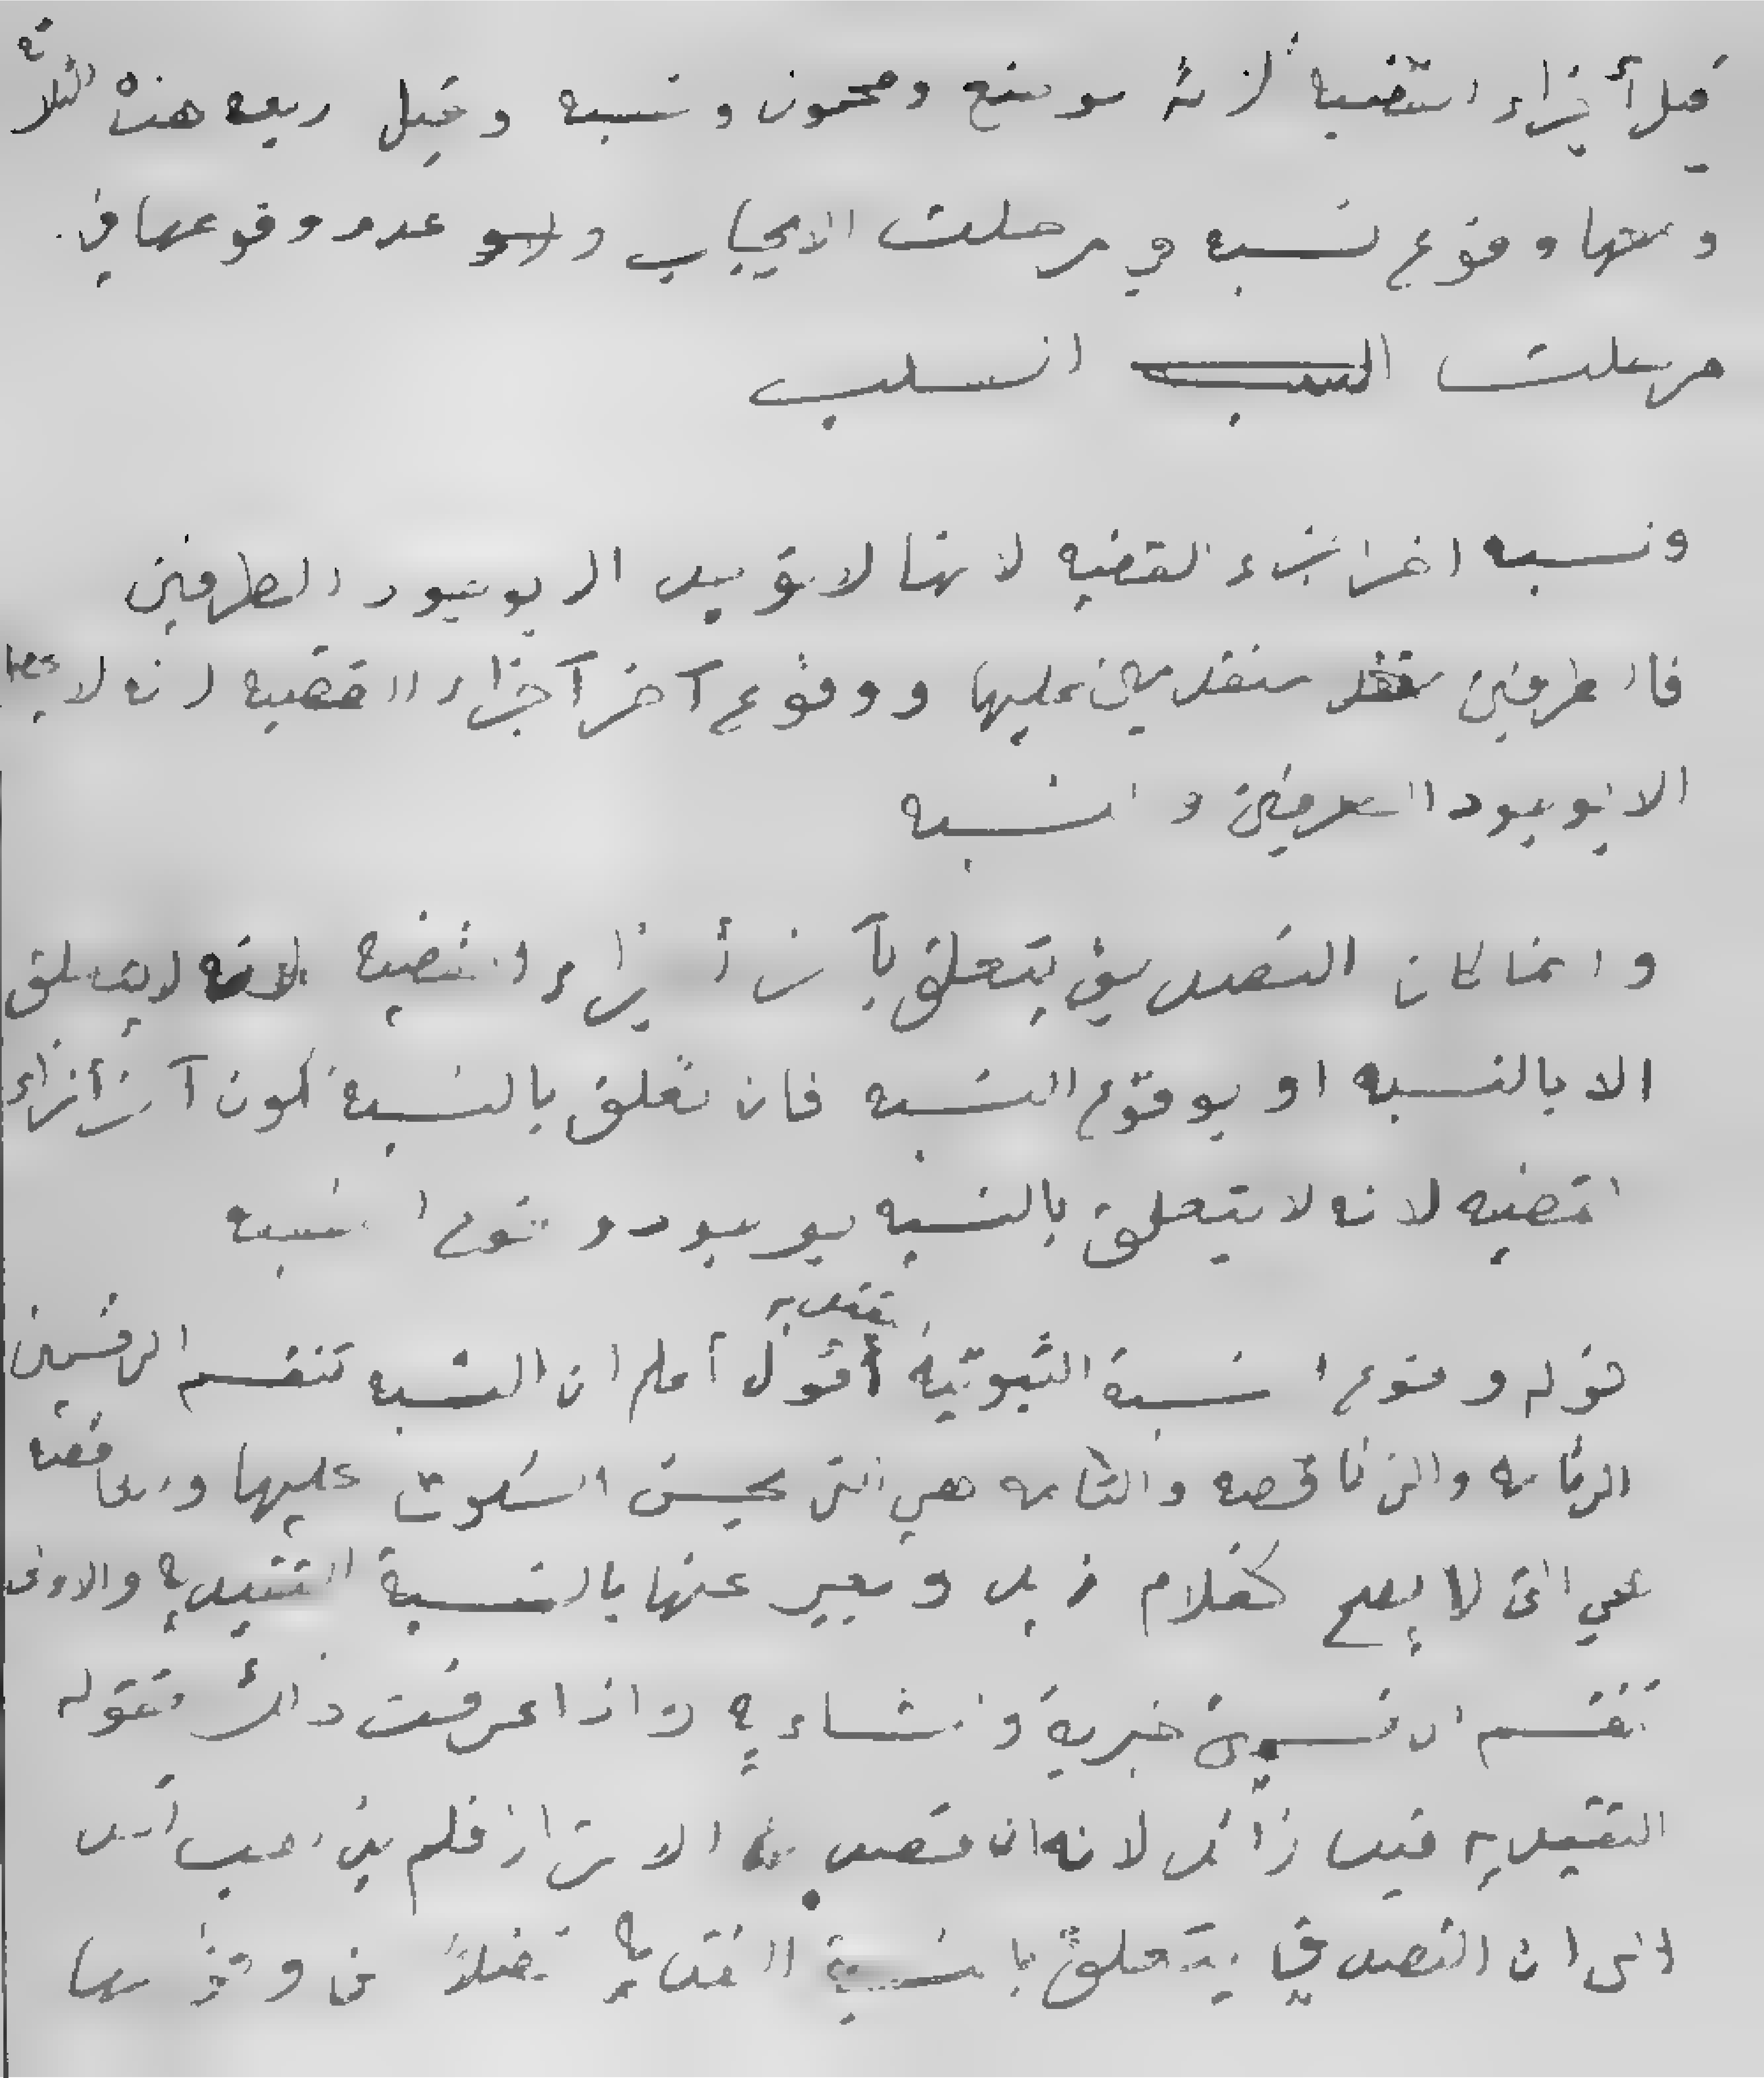 قيل أجزاء القضية ثلاثة موضع ومحمول ونسبه وقيل ربعه هذه الثلاثة
ومعها وقوع نسبه في مرحلت الايجاب و عدم وقوعها في
مرحلت السلب
ونسبه اخر اجزاء القضيه لانها لا توجد الا بوجود الطرفين
فالطرفين متقدمين عليها ووقوع آخر آجزاء القضيه لانه لا
الا بوجود الطرفين والنسبه
وانما كان التصديق يتعلق بآخر أجزاء القضيه لانه لا يتعلق
الا بالنسبه او بوقوع النسبه فان تعلق بالنسبة كون آخر أجزاء
القضيه لانه لا يتعلق بالنسبه بوجود وقوع النسبه
قوله وقوع النسبة الثبوتية تقيديه أقول أعلم ان النسبه تنقسم الى قسمين
الى تامه والى ناقصه والتامه هي التي يحسن السكوت عليها والناقصه
هي التي لا يصح كغلام زيد ويعبر عنها بالنسبة التقيديه والاولى
تنقسم الى قسمين خبرية وانشاءيه واذا عرفت ذالك فقوله
التقيديه قيد زائد لانه ان قصد به الاحتراز فلم يذهب احد
الى ان التصديق يتعلق بالنسبة التقيديه فضلاً عن وقوعها